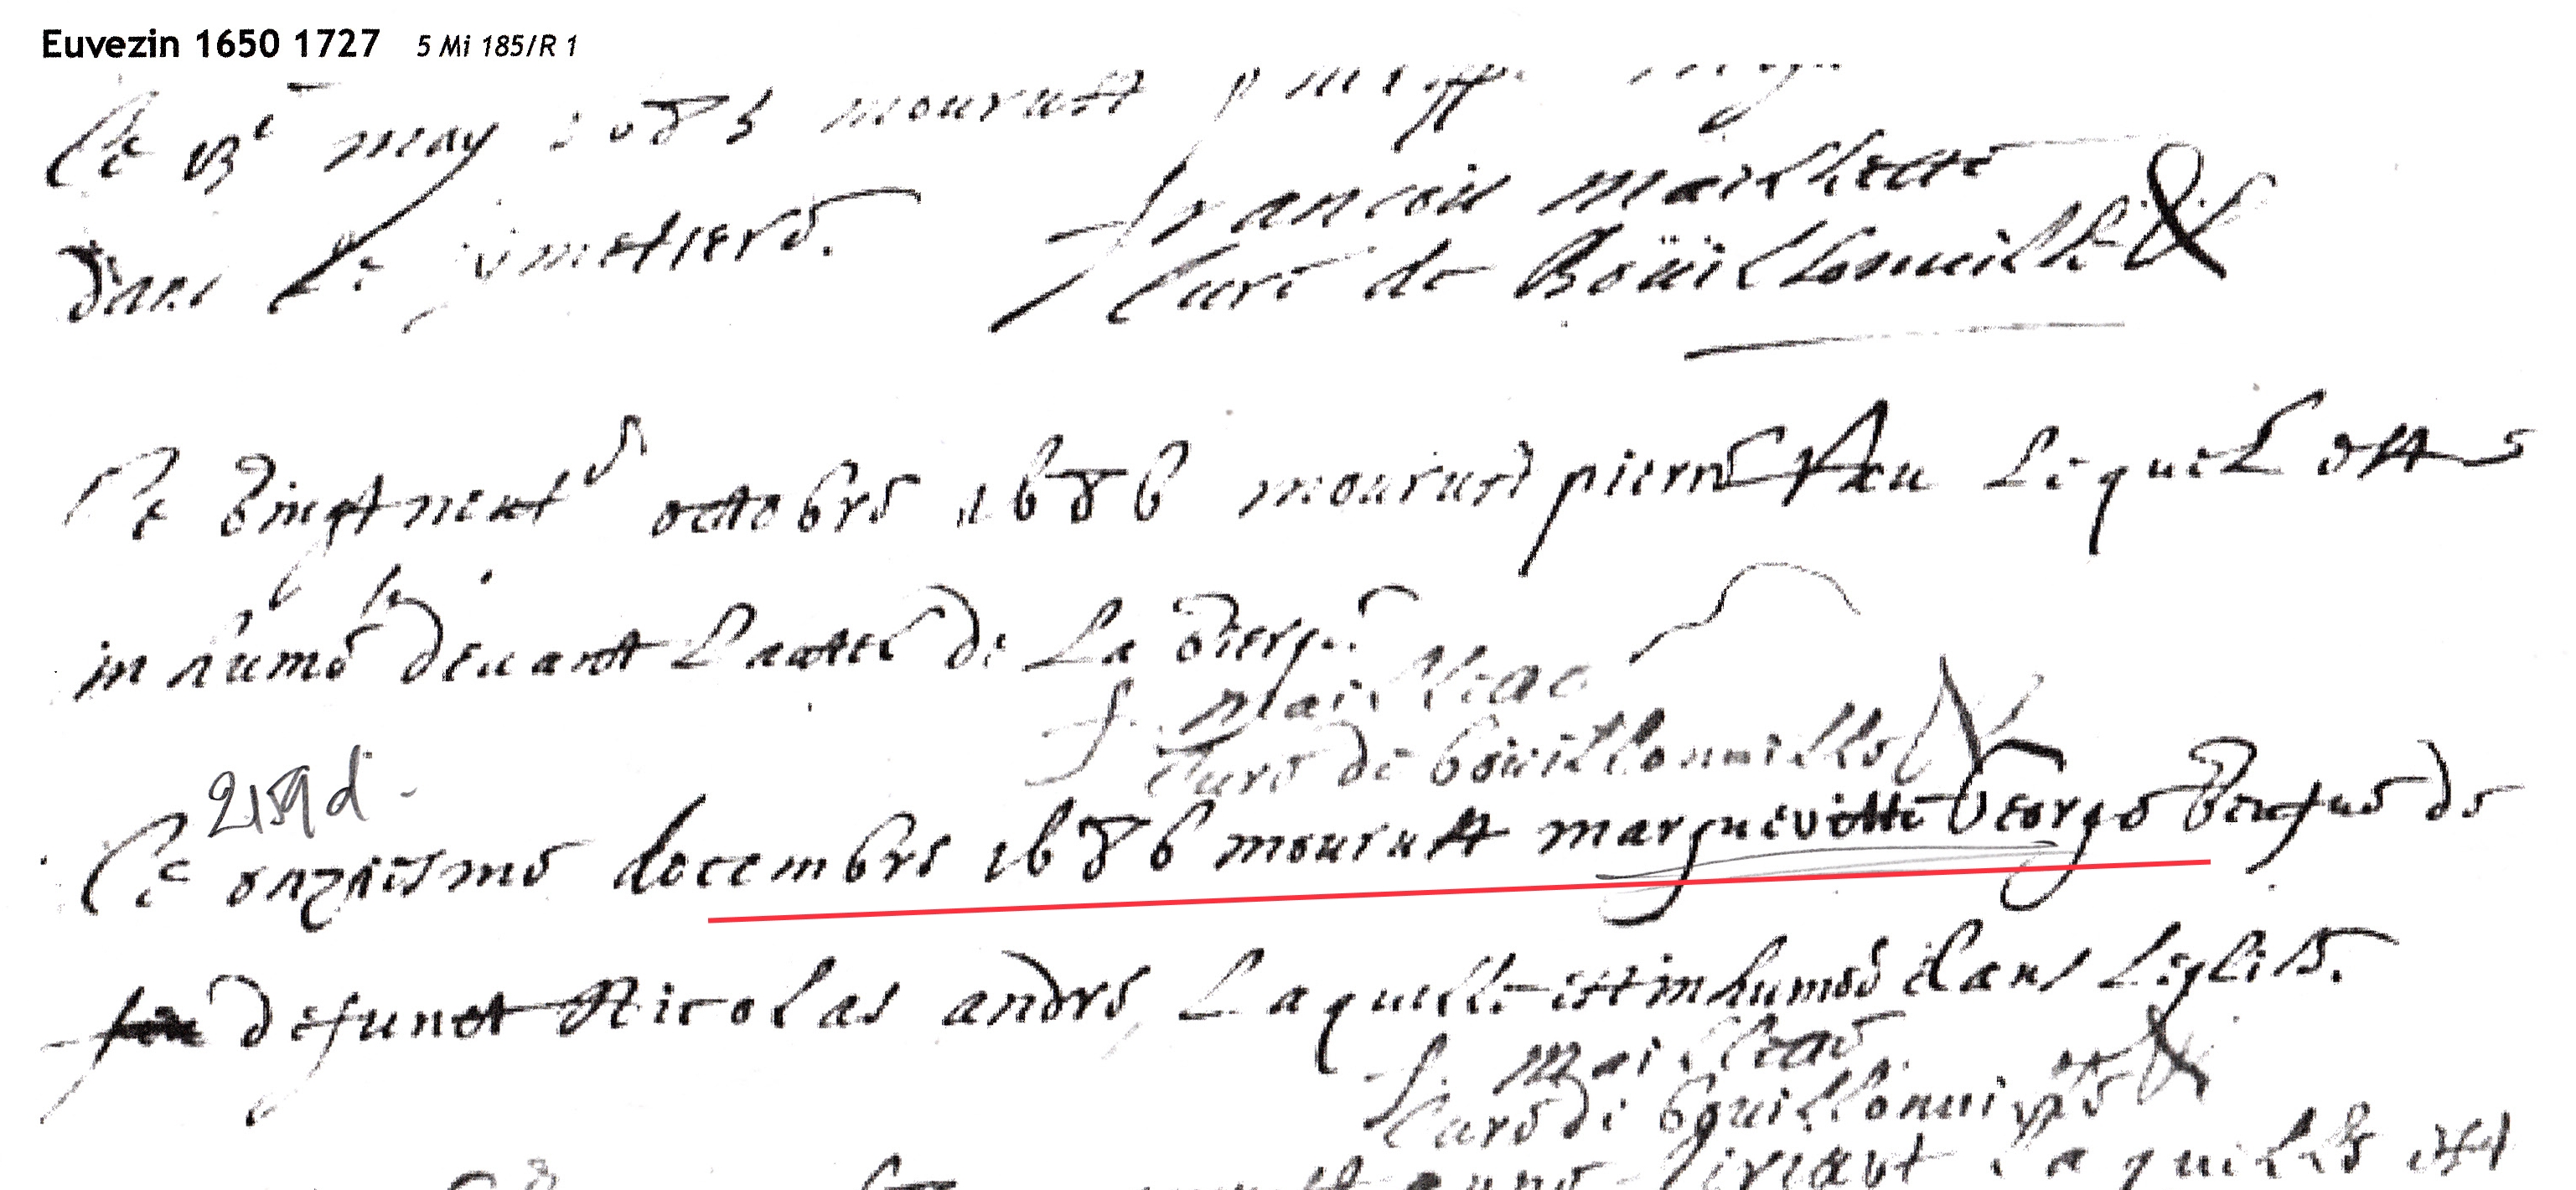 Euvezin 1650 1727 5 Mi 185/R 1
Le may mourutt
dans le simetiere.
francois maillette
Curé de Boüillonuille
Le vingt neuf octobre 1686 mourut pierre lequel este
inhumé deuant lautel de la vierge
f. mailleac
Curé de boüillonuille
2159d.
Le onzriesme decembre 1686 mourutt marguevitte George vefue de
defunct Nicolas andre, laquelle est inhumée dans leglise.
f. mailleac
Curé de bouillonui
laquelle est